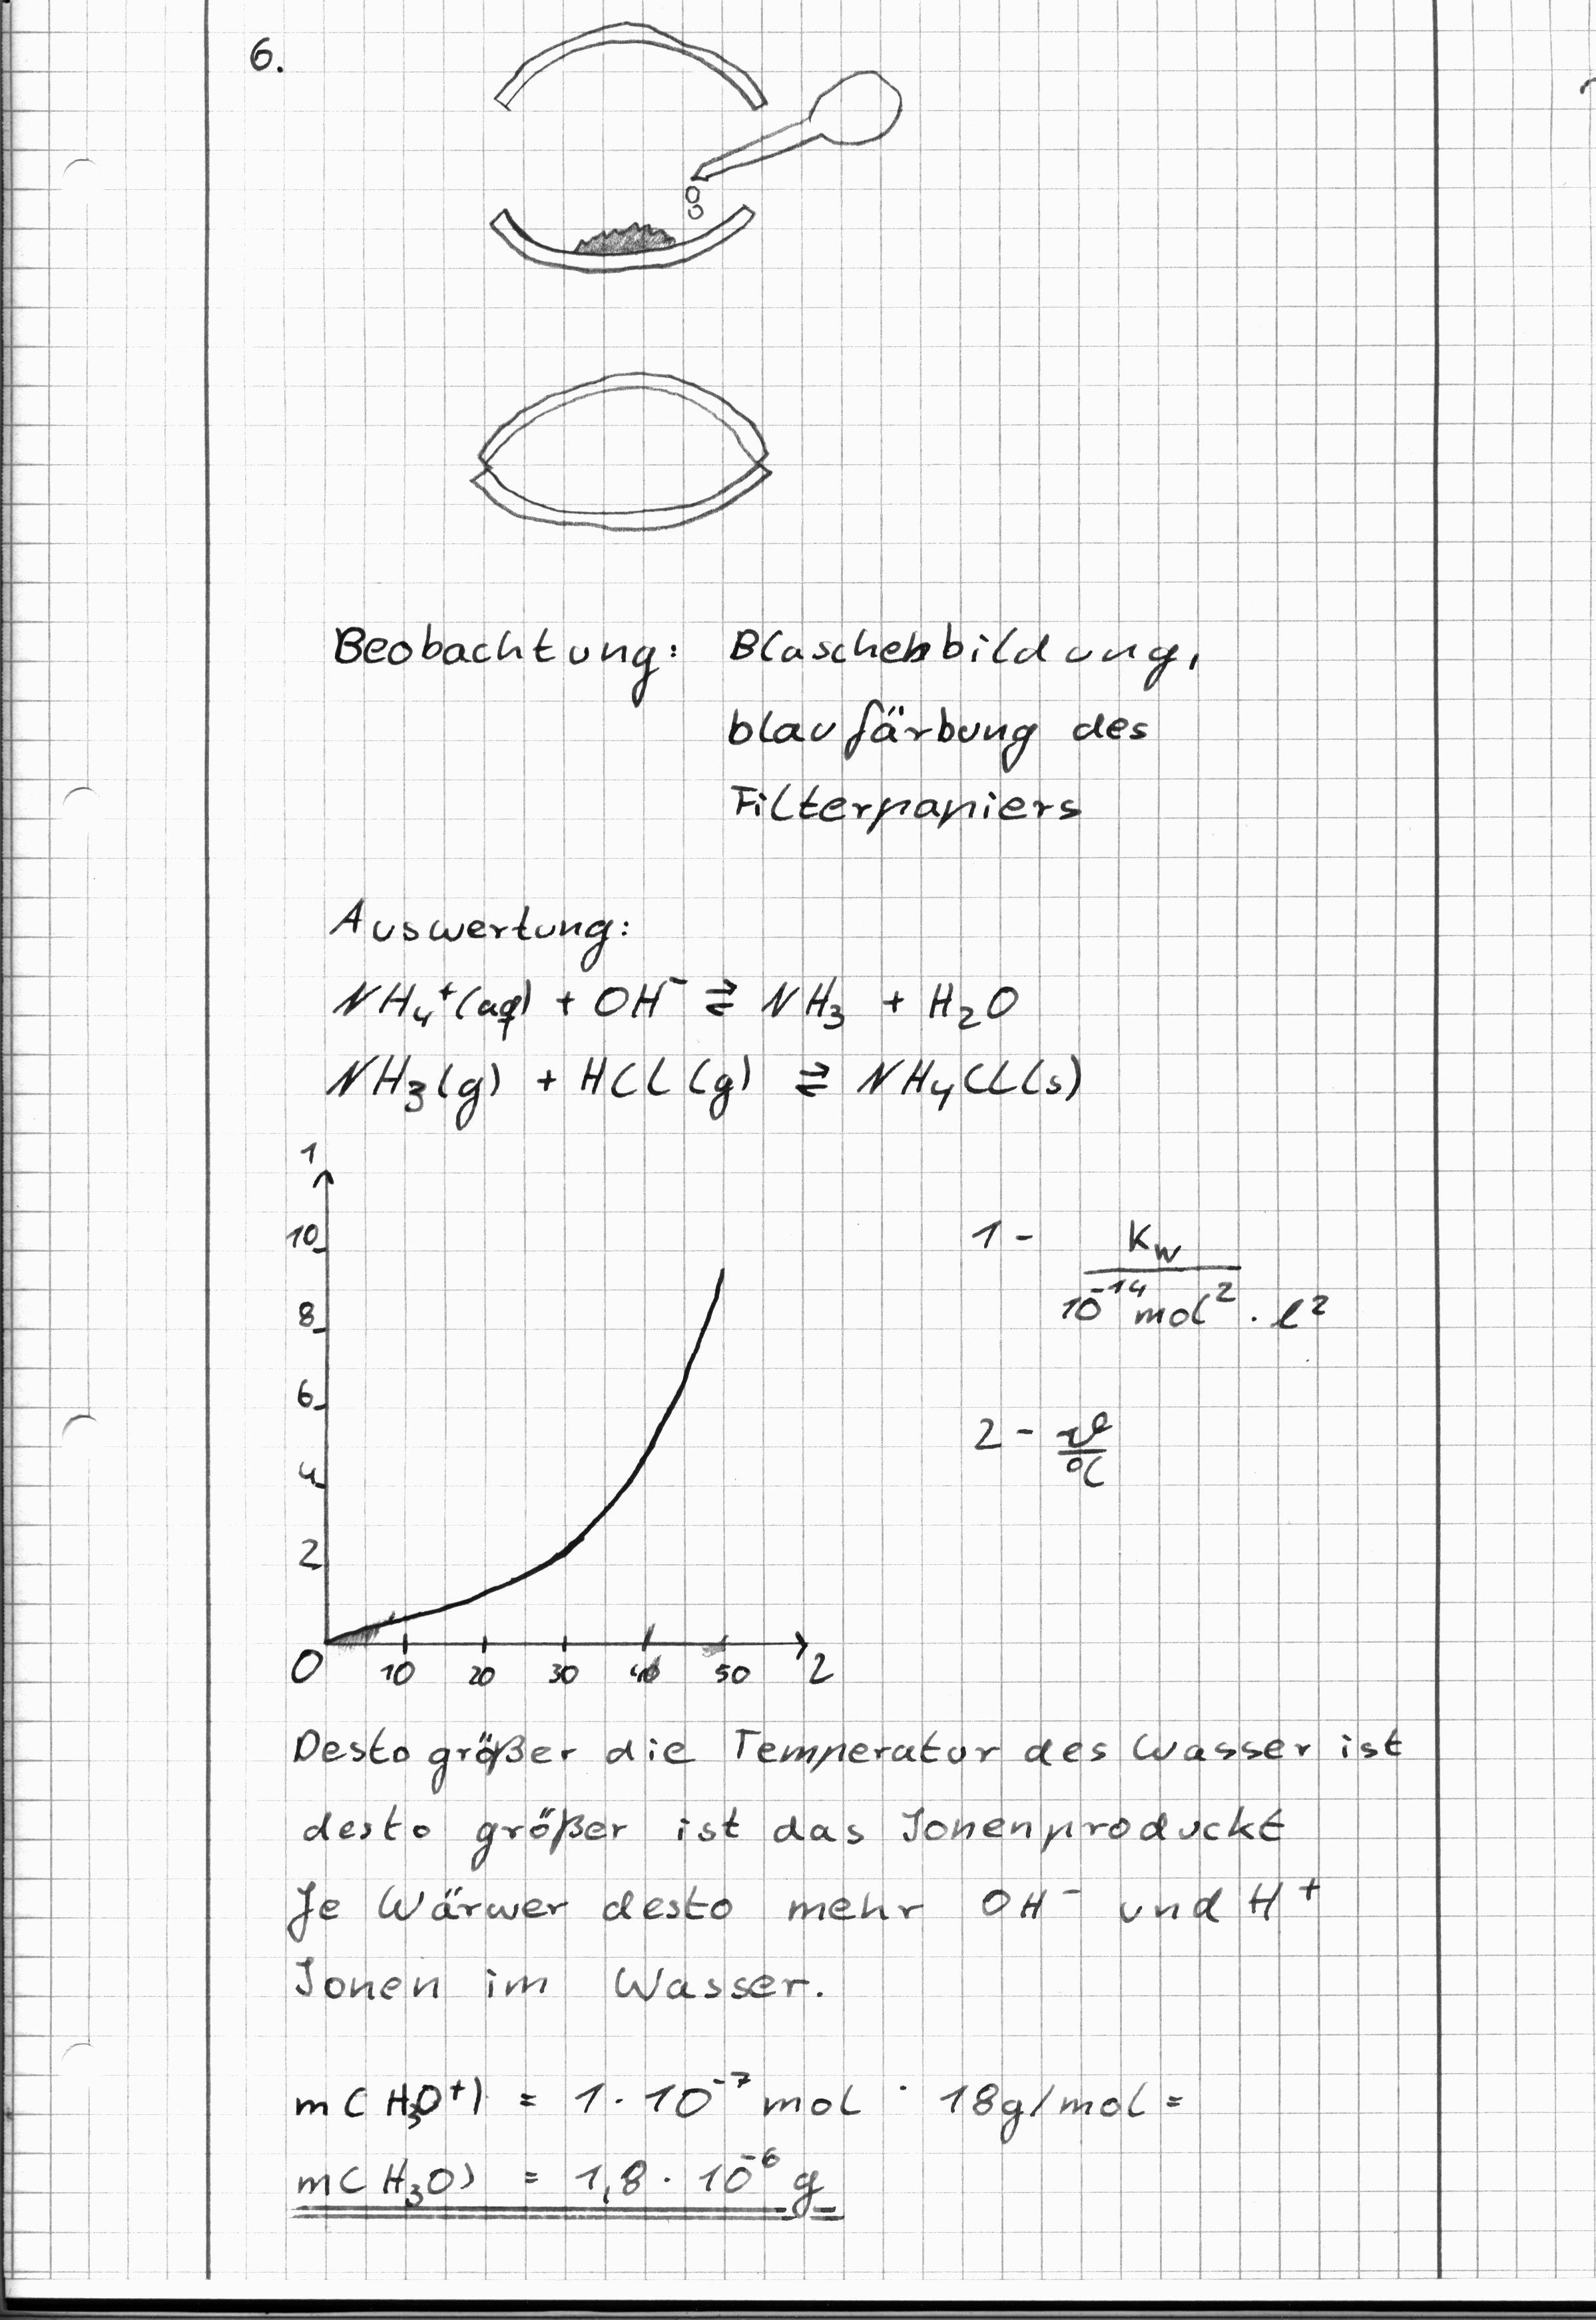 6.
Beobachtung: Blaschenbildung,
blaufärbung des
Filterpapiers
Auswertung:
NH₄⁺(aq) + OH⁻ ⇄ NH₃ + H₂O
NH₃(g) + HCl(g) ⇄ NH₄Cl(s)
1
10
8
6
4
2
0 10 20 30 40 50 2
1 - Kw / 10⁻¹⁴ mol² · l²
2 - ϑ / °C
Desto größer die Temperatur des Wasser ist
desto größer ist das Ionenproduckt
Je Wärwer desto mehr OH⁻ und H⁺
Ionen im Wasser.
m(H₃O⁺) = 1 · 10⁻⁷ mol · 18g/mol =
m(H₃O) = 1,8 · 10⁻⁶ g